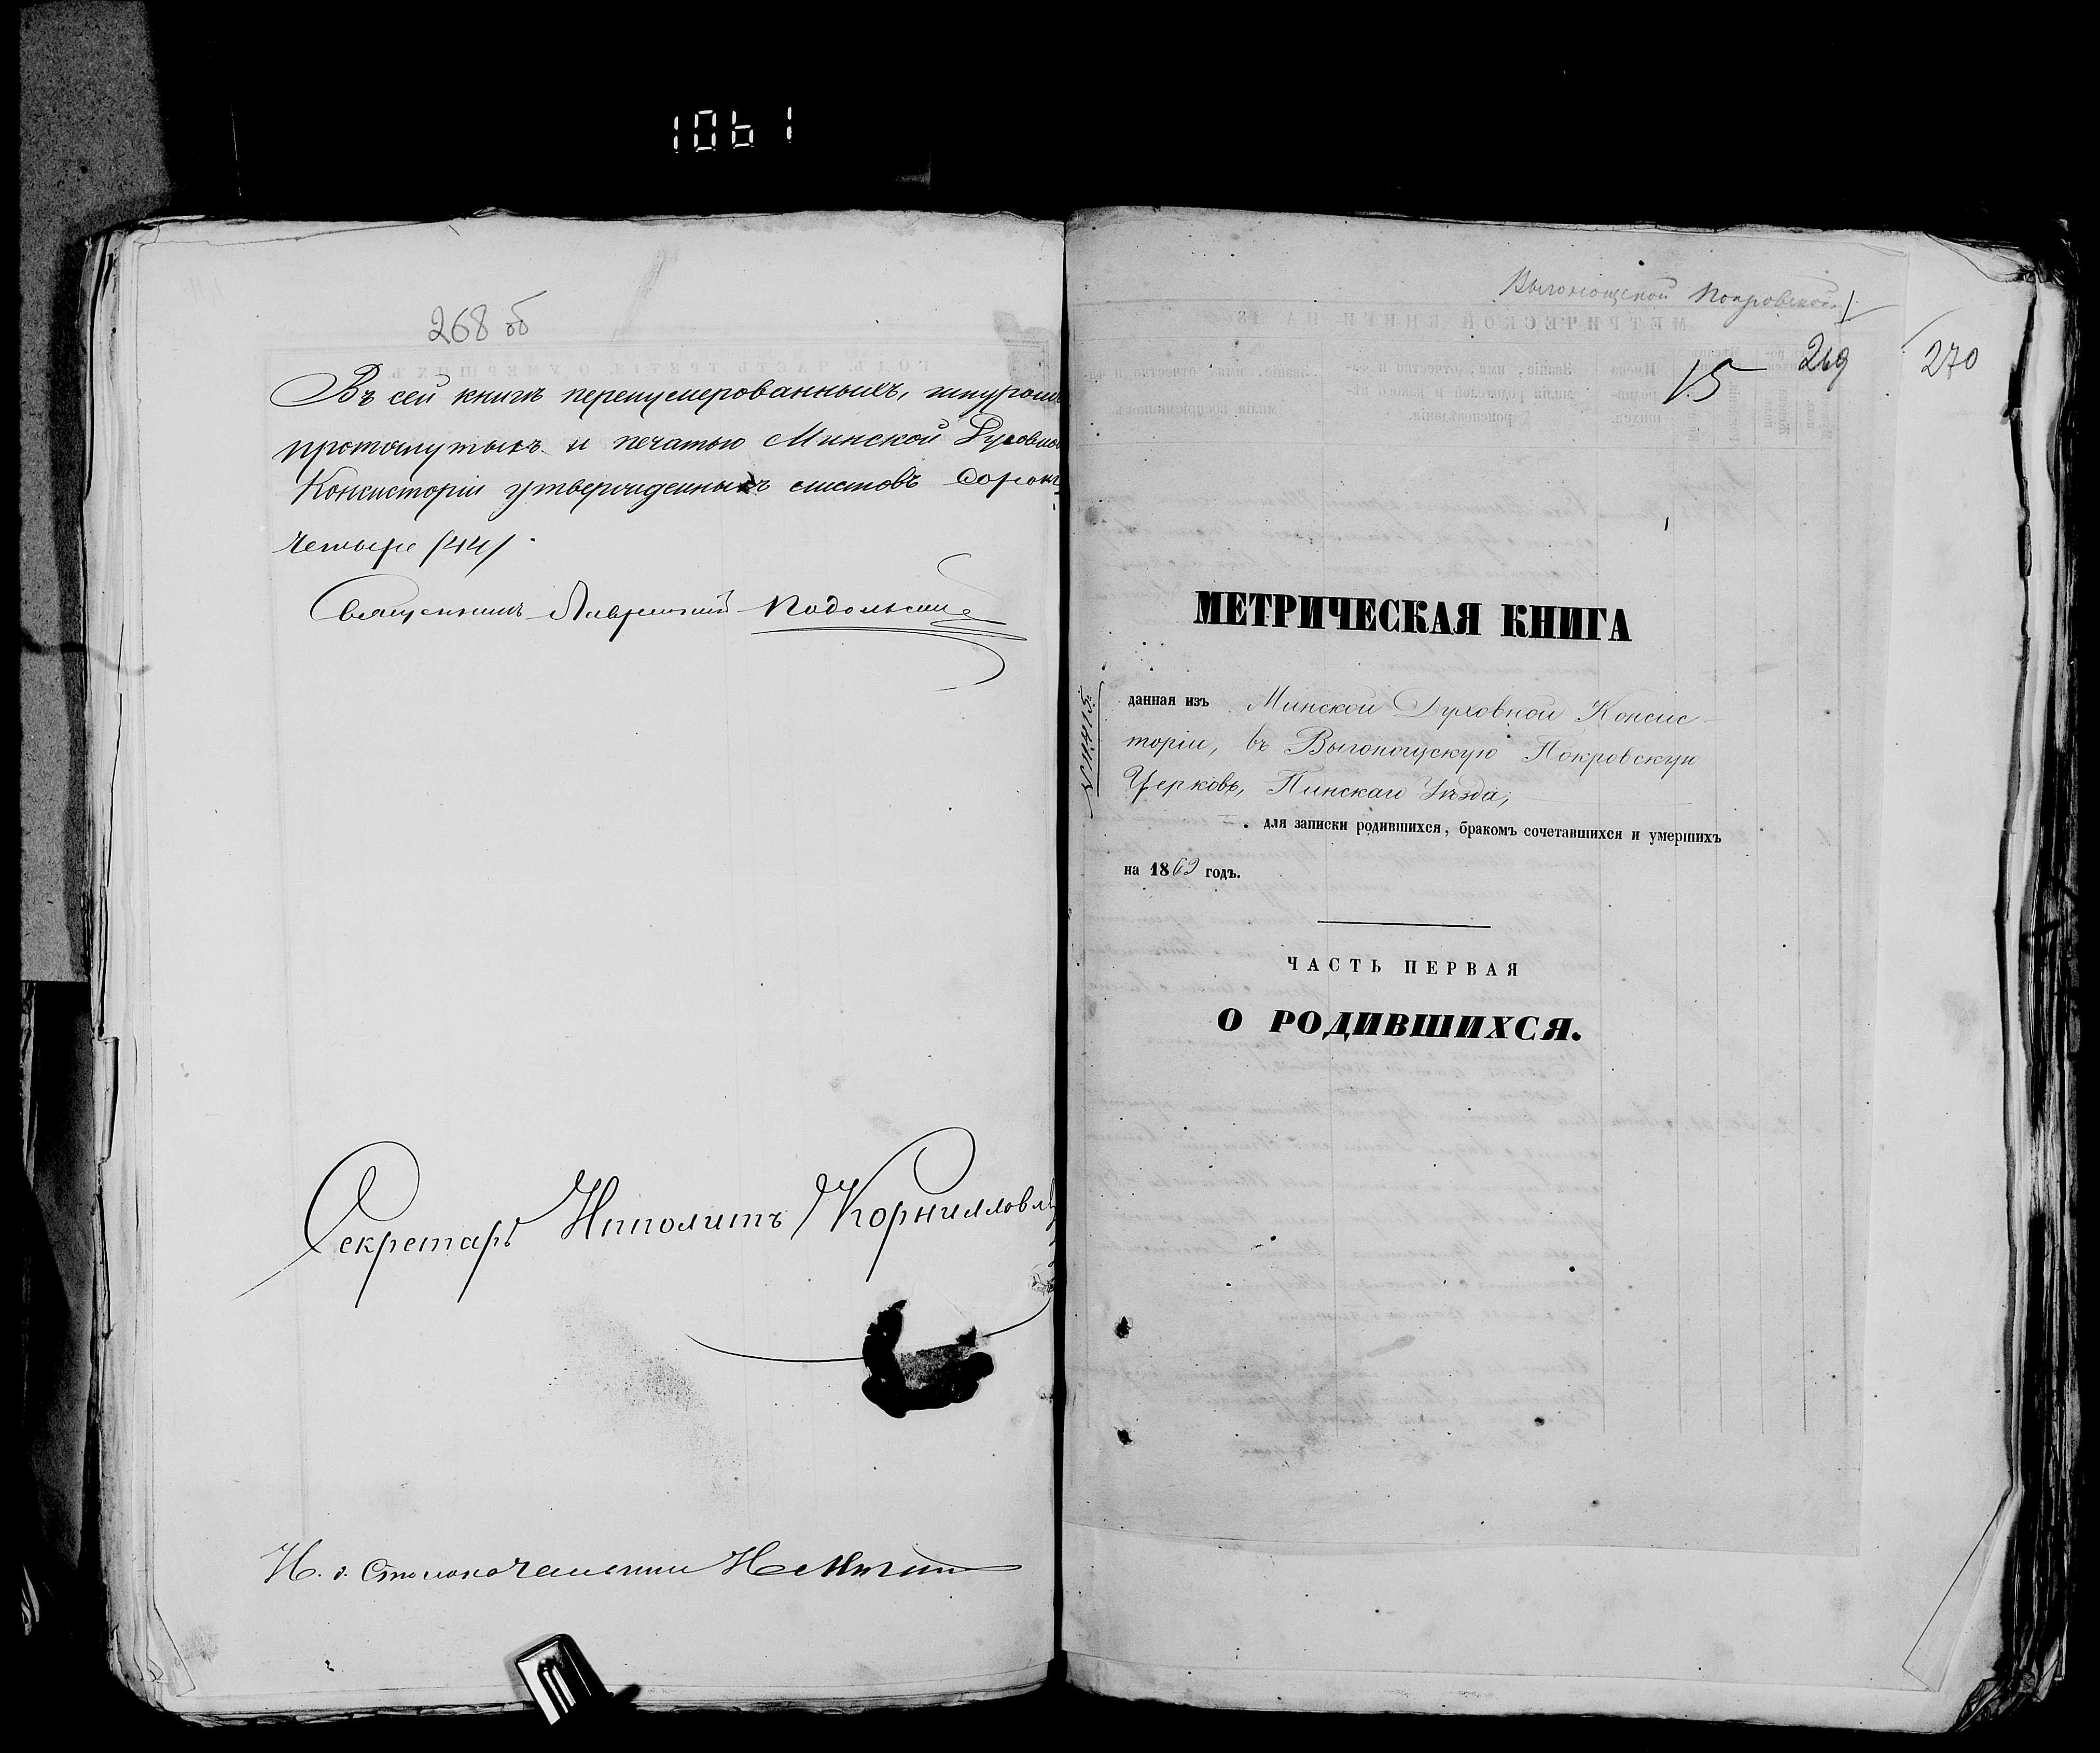 1061
268 об
Въ сей книгѣ перенумерованныхъ, шнуромъ
протянутыхъ и печатью Минской Духовной
Консисторіи утвержденныхъ листовъ Сорокъ
четыре /44/.
Священникъ Лаврентій Подольскій
Секретарь Ипполитъ Корнилов
И. д. Столоначальника
Выгонощской Покровской
15 269 270
МЕТРИЧЕСКАЯ КНИГА
данная изъ Минской Духовной Консис-
торіи, въ Выгонощскую Покровскую
Церковь, Пинскаго Уѣзда,
для записки родившихся, бракомъ сочетавшихся и умершихъ
на 1863 годъ.
ЧАСТЬ ПЕРВАЯ
О РОДИВШИХСЯ.